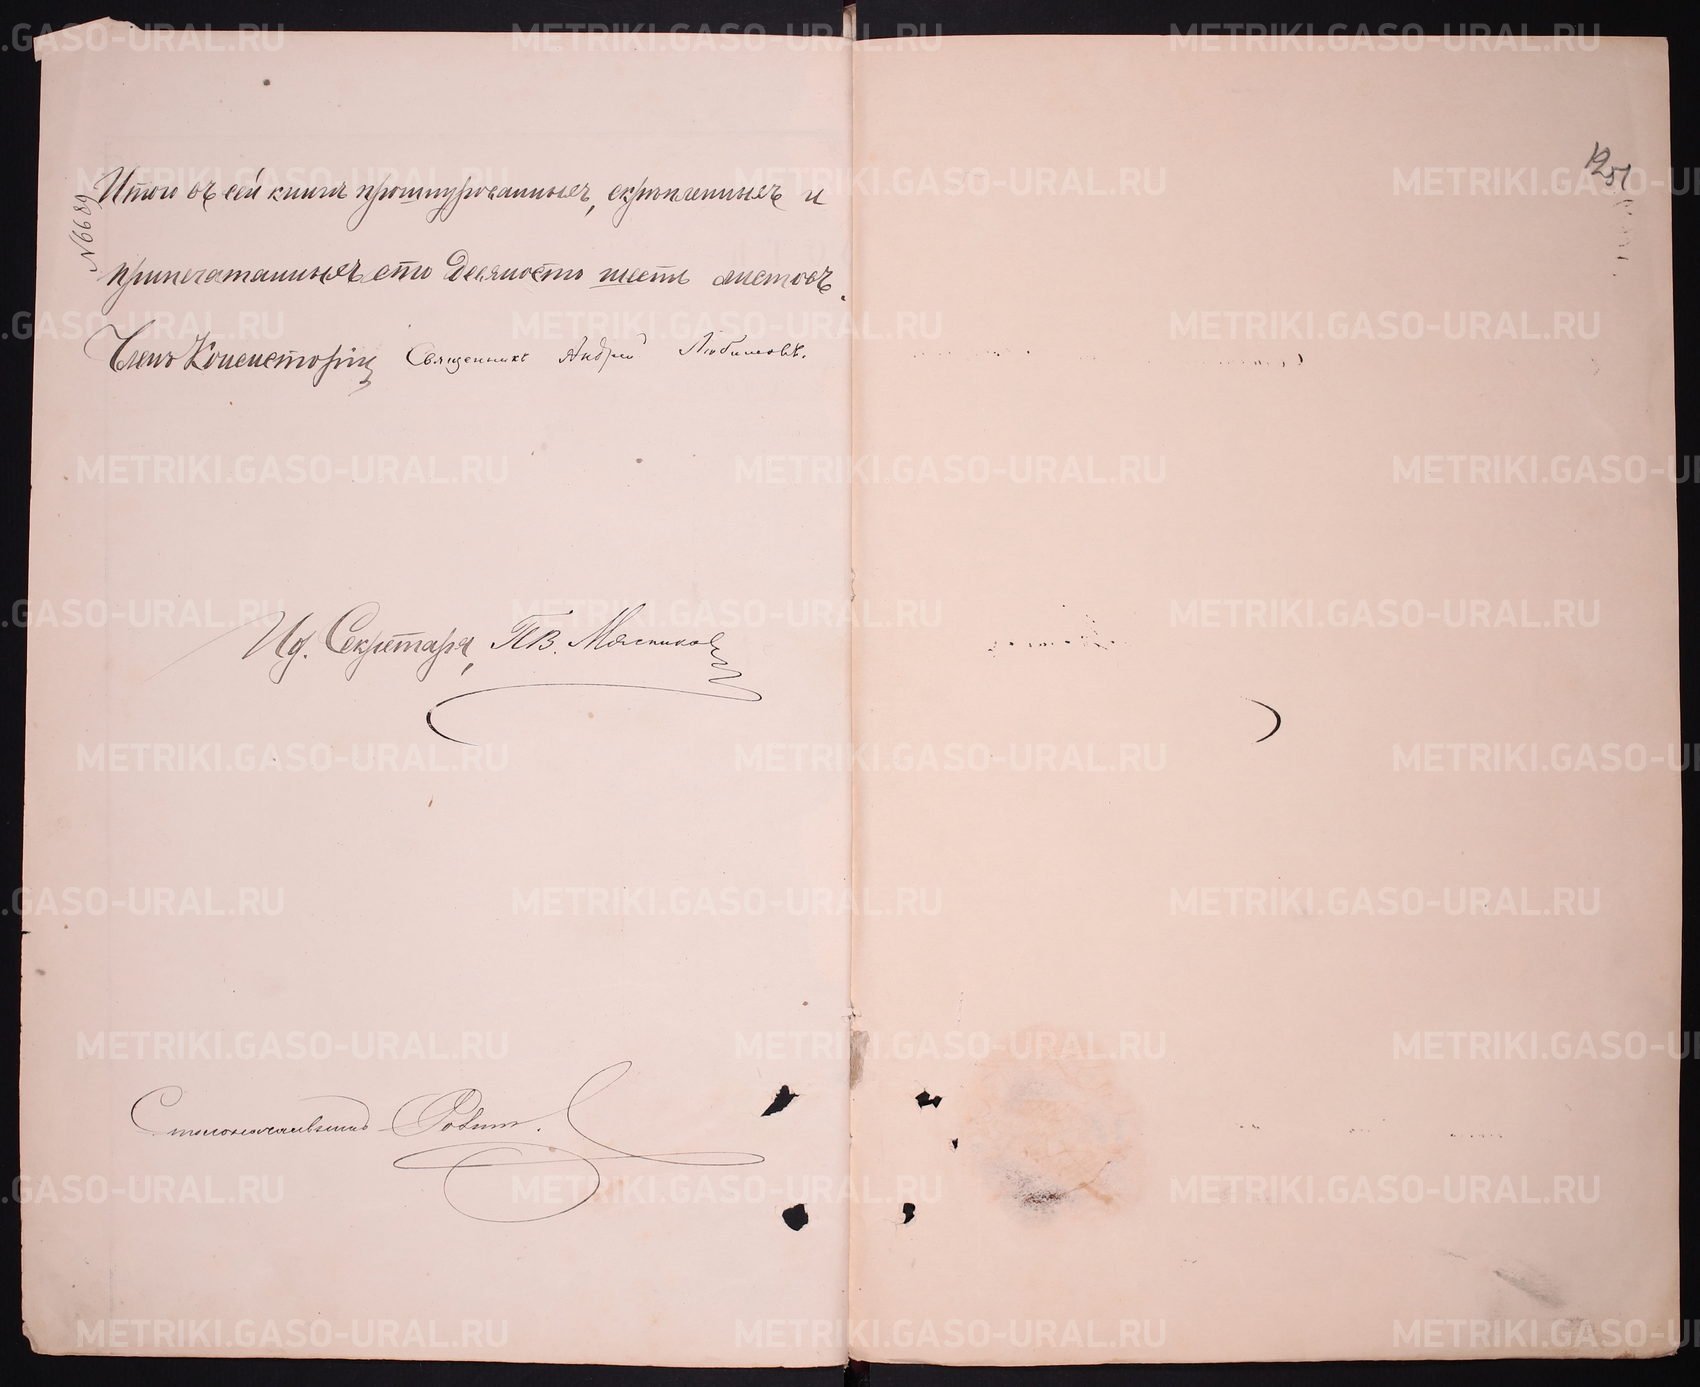 № 6689
Итого въ сей книгѣ прошнурованныхъ, скрѣпленныхъ и
припечатанныхъ сто девяносто шесть листовъ.
Членъ Консисторіи Священникъ Андрей Любимовъ.
И д. Секретаря, П. В. Мясников
Столоначальникъ
METRIKI.GASO-URAL.RU